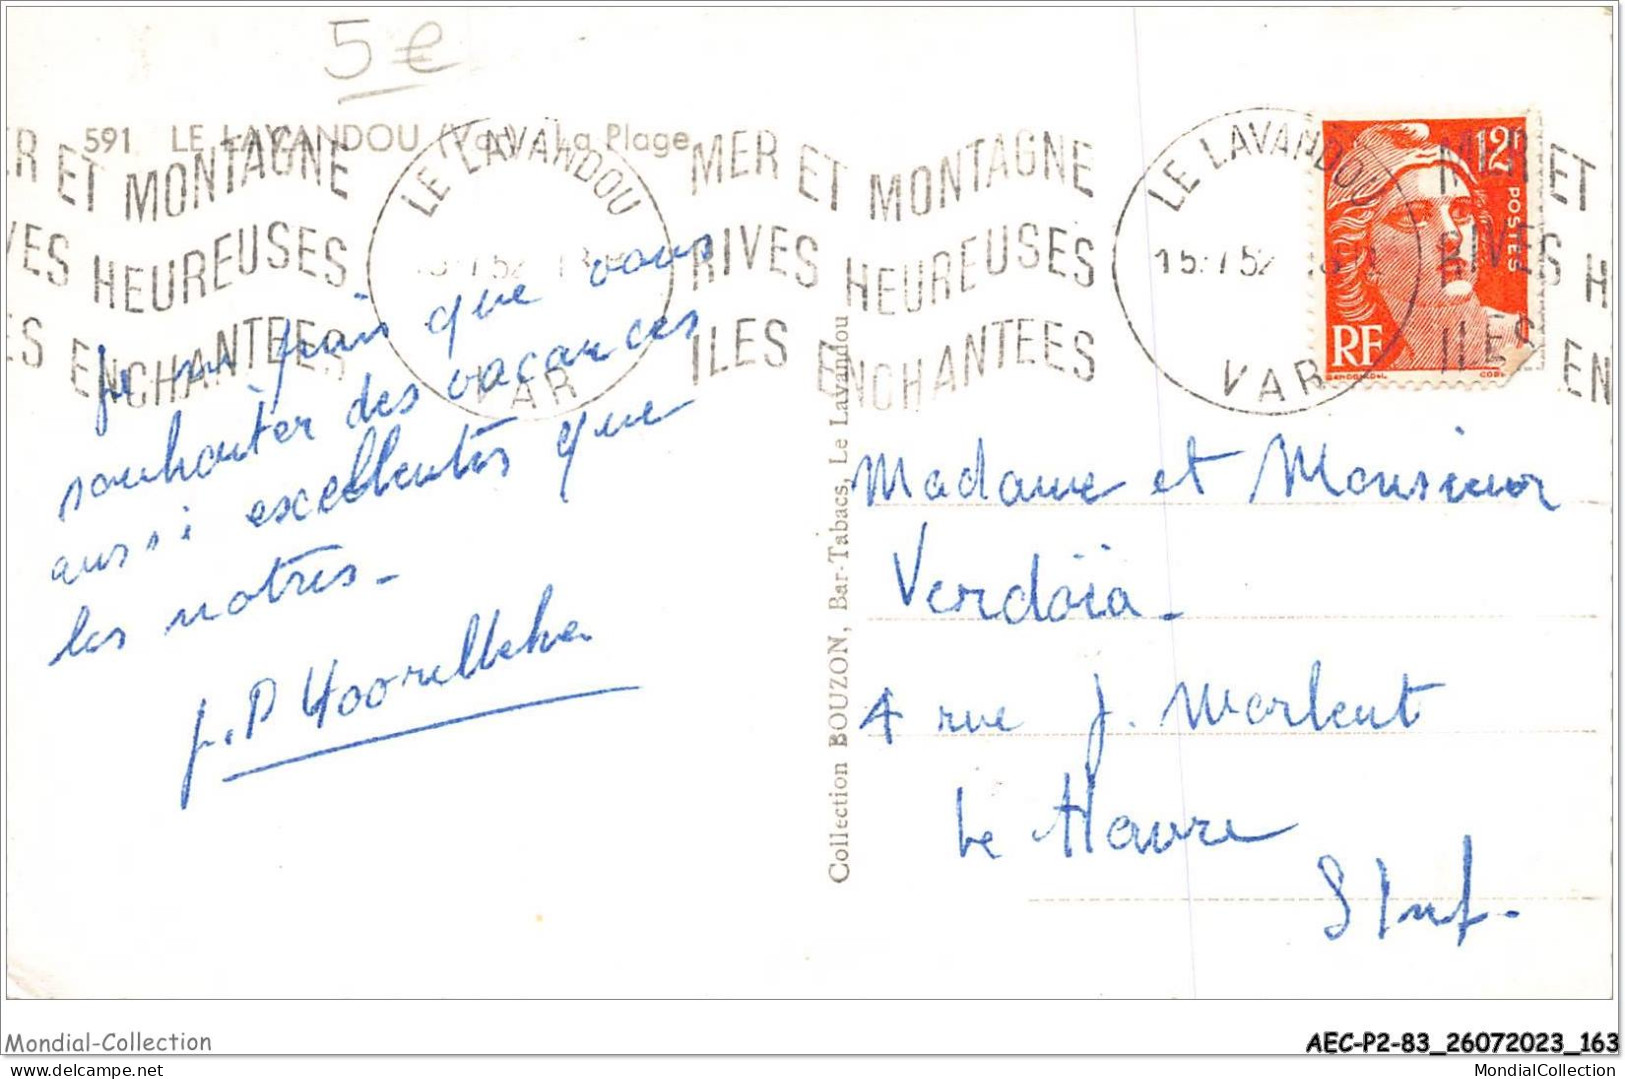 5€
591 LE LAVANDOU (Var) - La Plage
ER ET MONTAGNE
VES HEUREUSES
ES ENCHANTEES
LE LAVANDOU
52
VAR
MER ET MONTAGNE
RIVES HEUREUSES
ILES ENCHANTEES
LE LAVANDOU
15 - 7 52
VAR
MER ET
RIVES H
ILES EN
12F
POSTES
RF
Je ne puis que vous
souhaiter des vacances
aussi excellentes que
les notres -
J.P Hoorelbeke
Collection BOUZON, Bar-Tabacs, Le Lavandou
Madame et Monsieur
Verdoïa -
4 rue J. Morlent
Le Havre
S Inf -
Mondial-Collection
AEC-P2-83_26072023_163
delcampe.net
MondialCollection